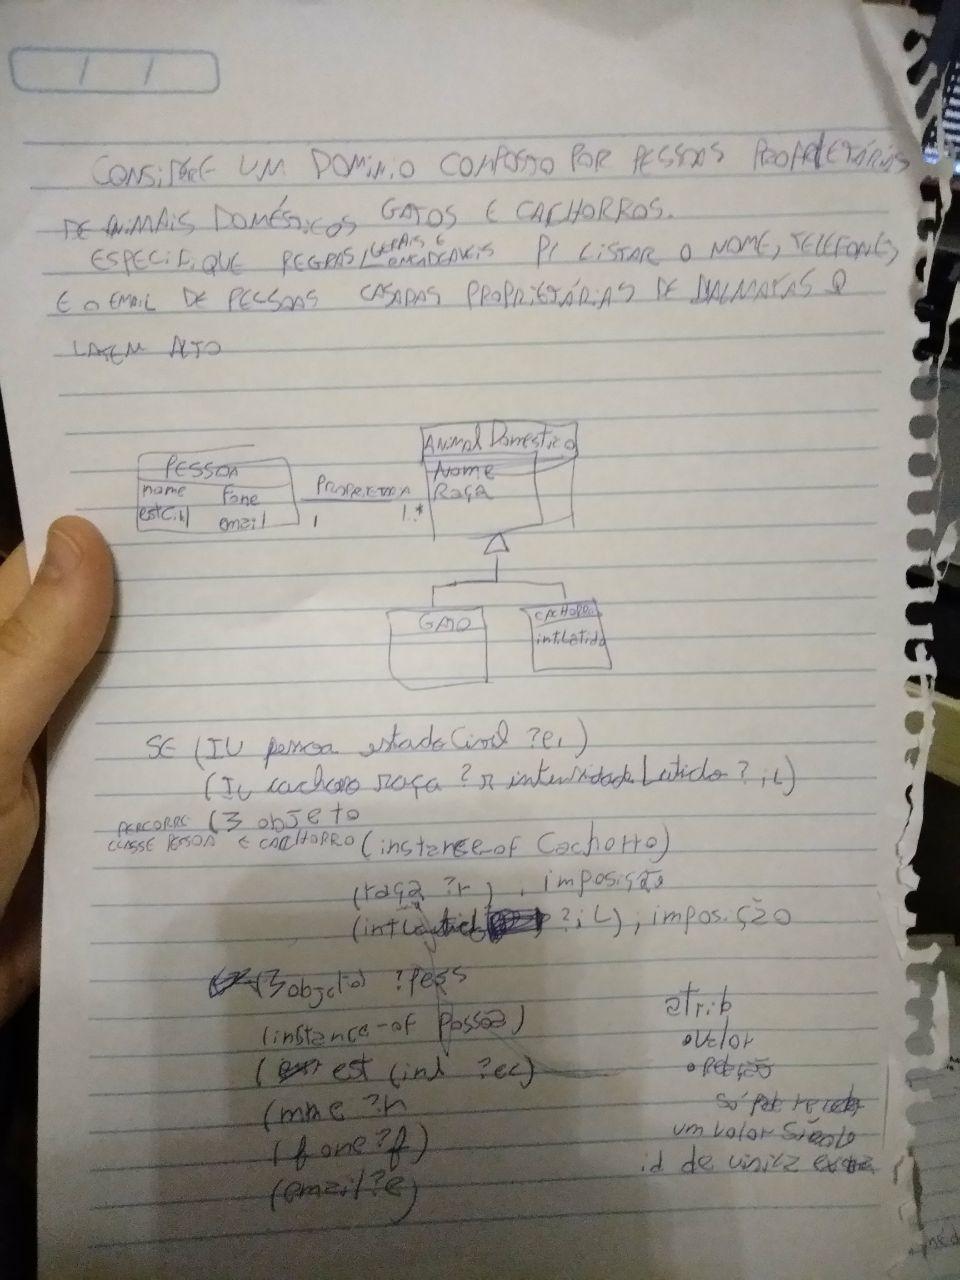 CONSIDERE UM DOMINIO COMPOSTO POR PESSOAS PROPRIETÁRIAS
DE ANIMAIS DOMÉSTICOS GATOS E CACHORROS.
ESPECIFIQUE REGRAS GERAIS E ENCADEAVEIS P/ LISTAR O NOME, TELEFONE,
E O EMAIL DE PESSOAS CASADAS PROPRIETÁRIAS DE DALMATAS Q
LATEM ALTO
PESSOA
nome fone
estCivil email
PROPRIETARIA
1 1.*
Animal Domestico
Nome
Raça
GATO
CACHORRO
intLatido
SE (IU pessoa estado Civil ?e1)
(IU cachorro raça ?r intensidade Latido ?iL)
PERCORRE (∃ objeto
CLASSE PESSOA E CACHORRO (instance-of Cachorro)
(raça ?r), imposição
(intLatido ?iL), imposição
(∃ objeto) ?Pess
(instance-of Pessoa)
(est Civil ?ec)
(nome ?n
(fone ?f)
(email ?e)
atrib
•valor
só pode receber
um valor
id de